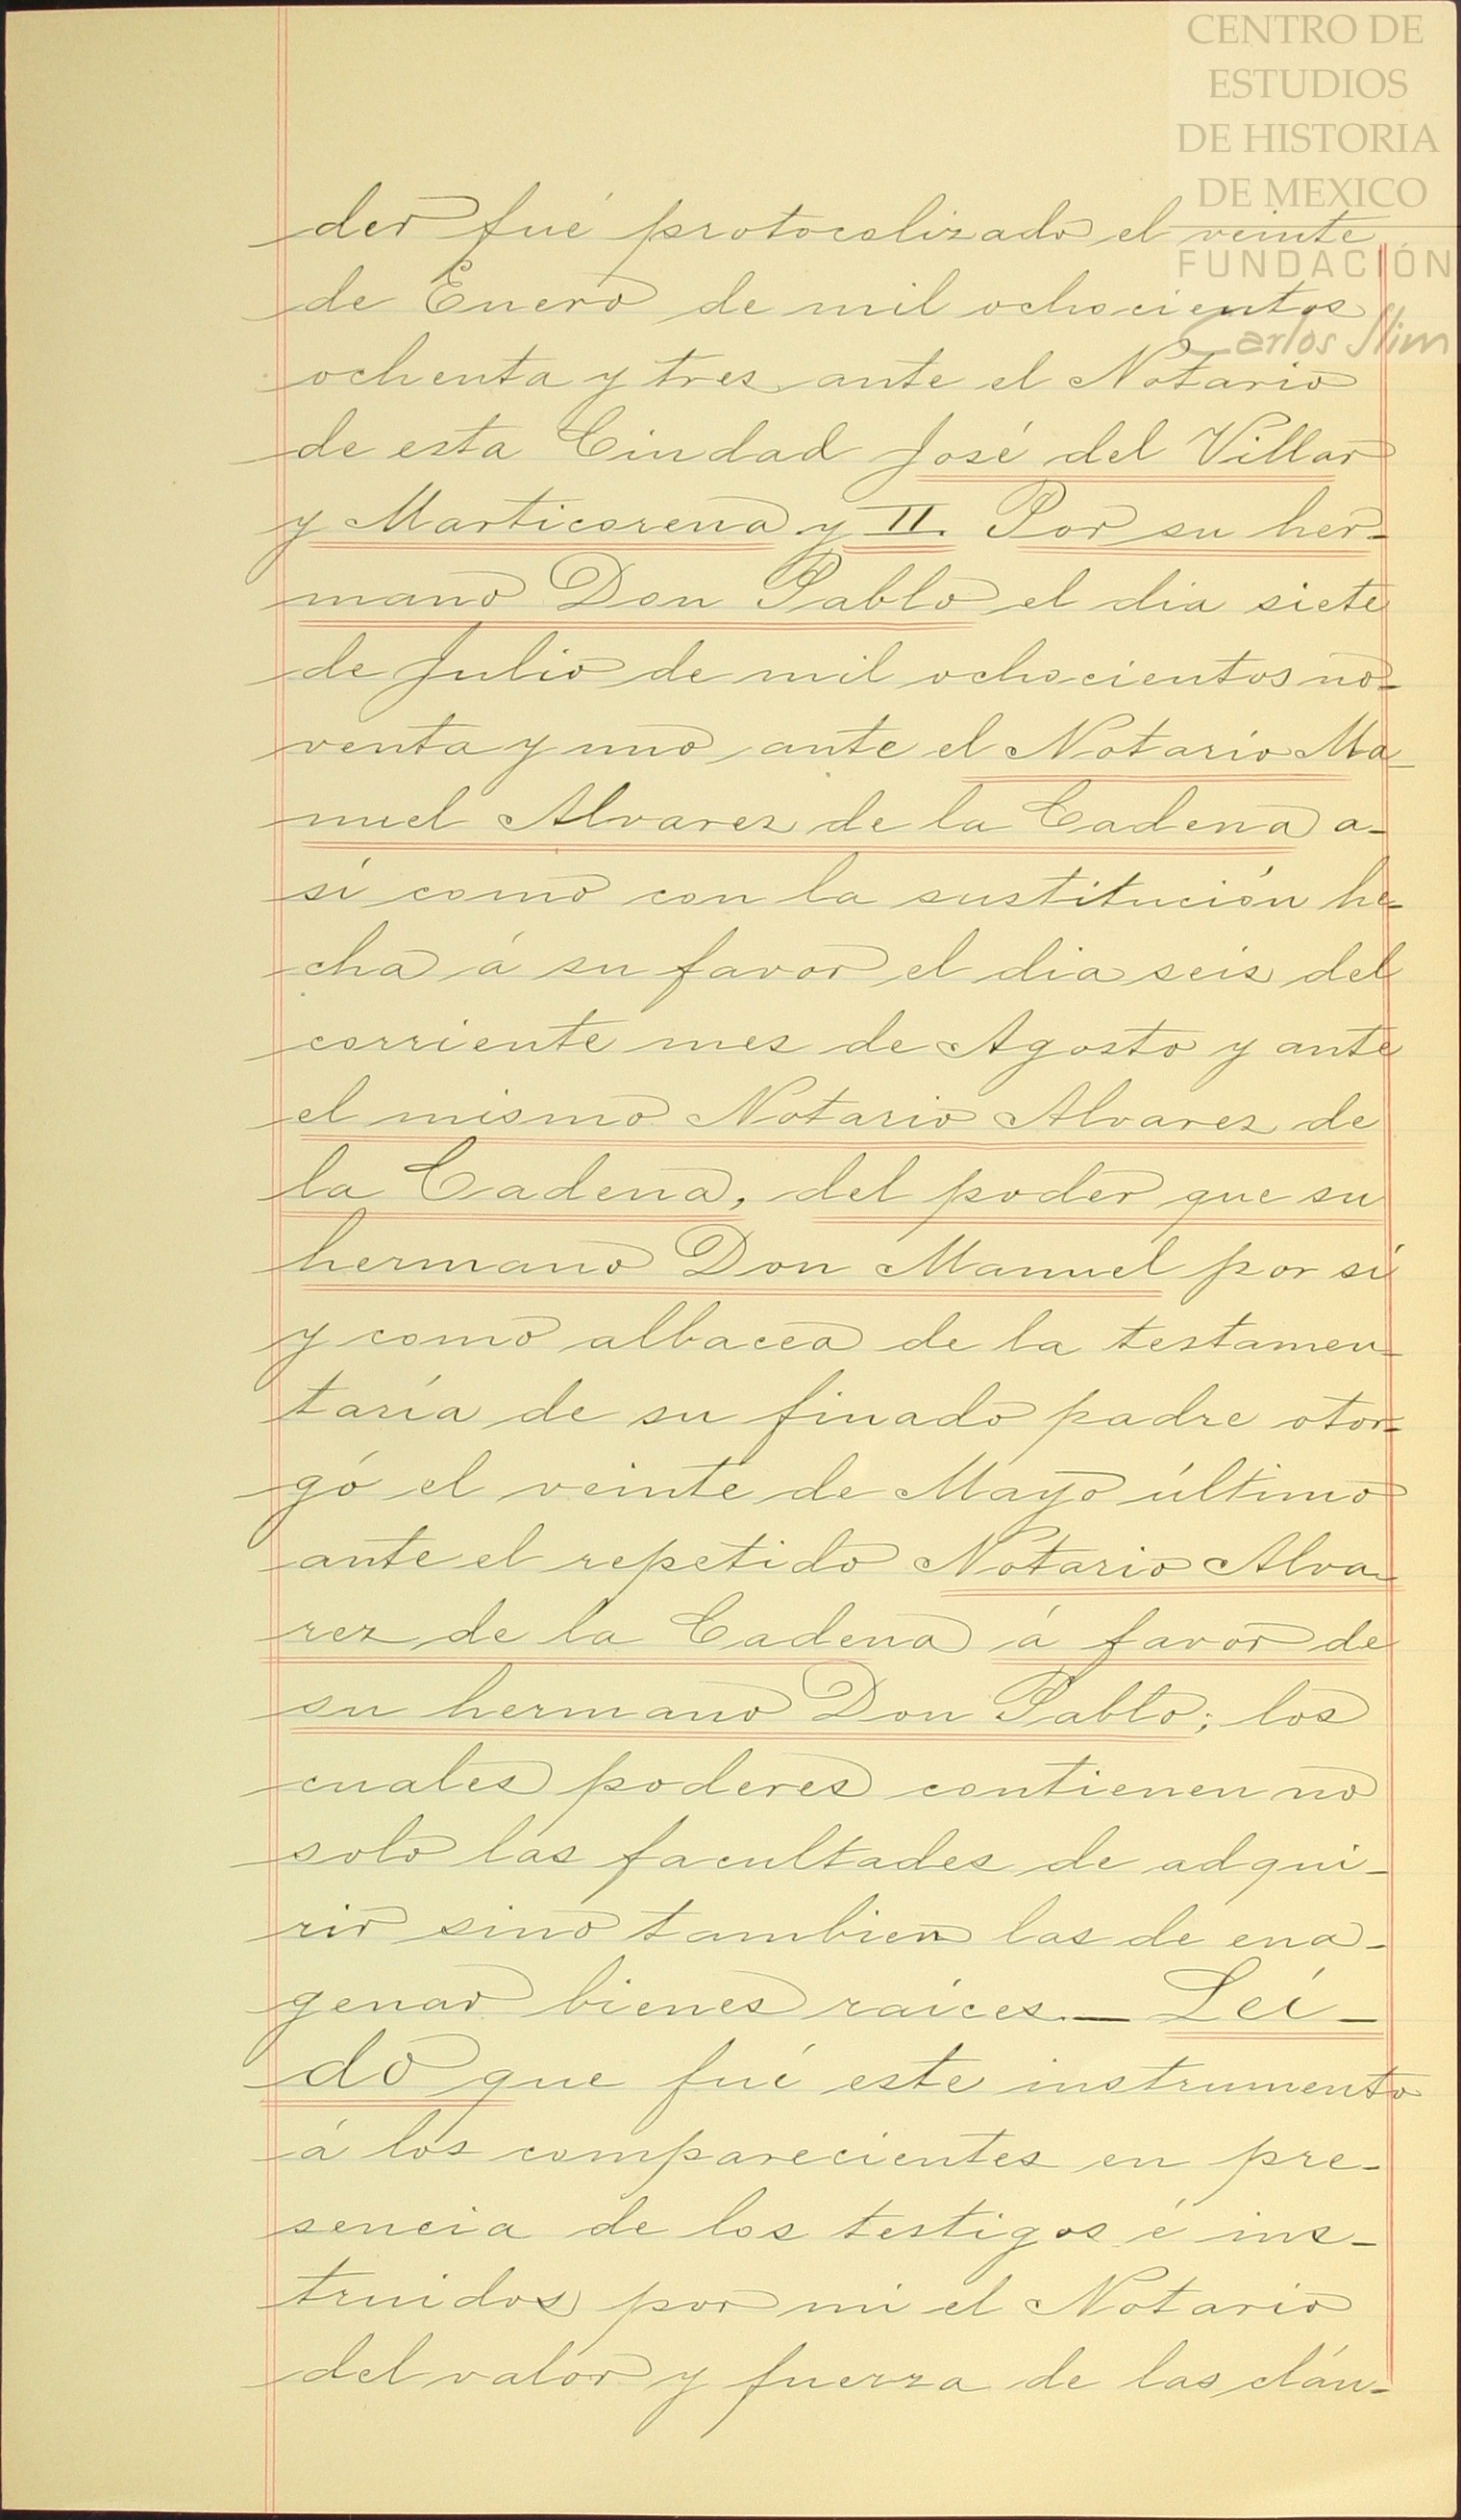 CENTRO DE
ESTUDIOS
DE HISTORIA
DE MEXICO
FUNDACIÓN
Carlos Slim
der fué protocolizado el veinte
de Enero de mil ochocientos
ochenta y tres ante el Notario
de esta Ciudad José del Villar
y Marticorena y II. Por su her-
mano Don Pablo el dia siete
de Julio de mil ochocientos no-
venta y uno ante el Notario Ma-
nuel Alvarez de la Cadena a-
sí como con la sustitución he-
cha á su favor el dia seis del
corriente mes de Agosto y ante
el mismo Notario Alvarez de
la Cadena, del poder que su
hermano Don Manuel por sí
y como albacea de la testamen-
taría de su finado padre otor-
gó el veinte de Mayo último
ante el repetido Notario Alva-
rez de la Cadena á favor de
su hermano Don Pablo; los
cuales poderes contienen no
solo las facultades de adqui-
rir sino tambien las de ena-
genar bienes raíces.— Leí-
do que fué este instrumento
á los comparecientes en pre-
sencia de los testigos é ins-
truidos por mi el Notario
del valor y fuerza de las cláu-